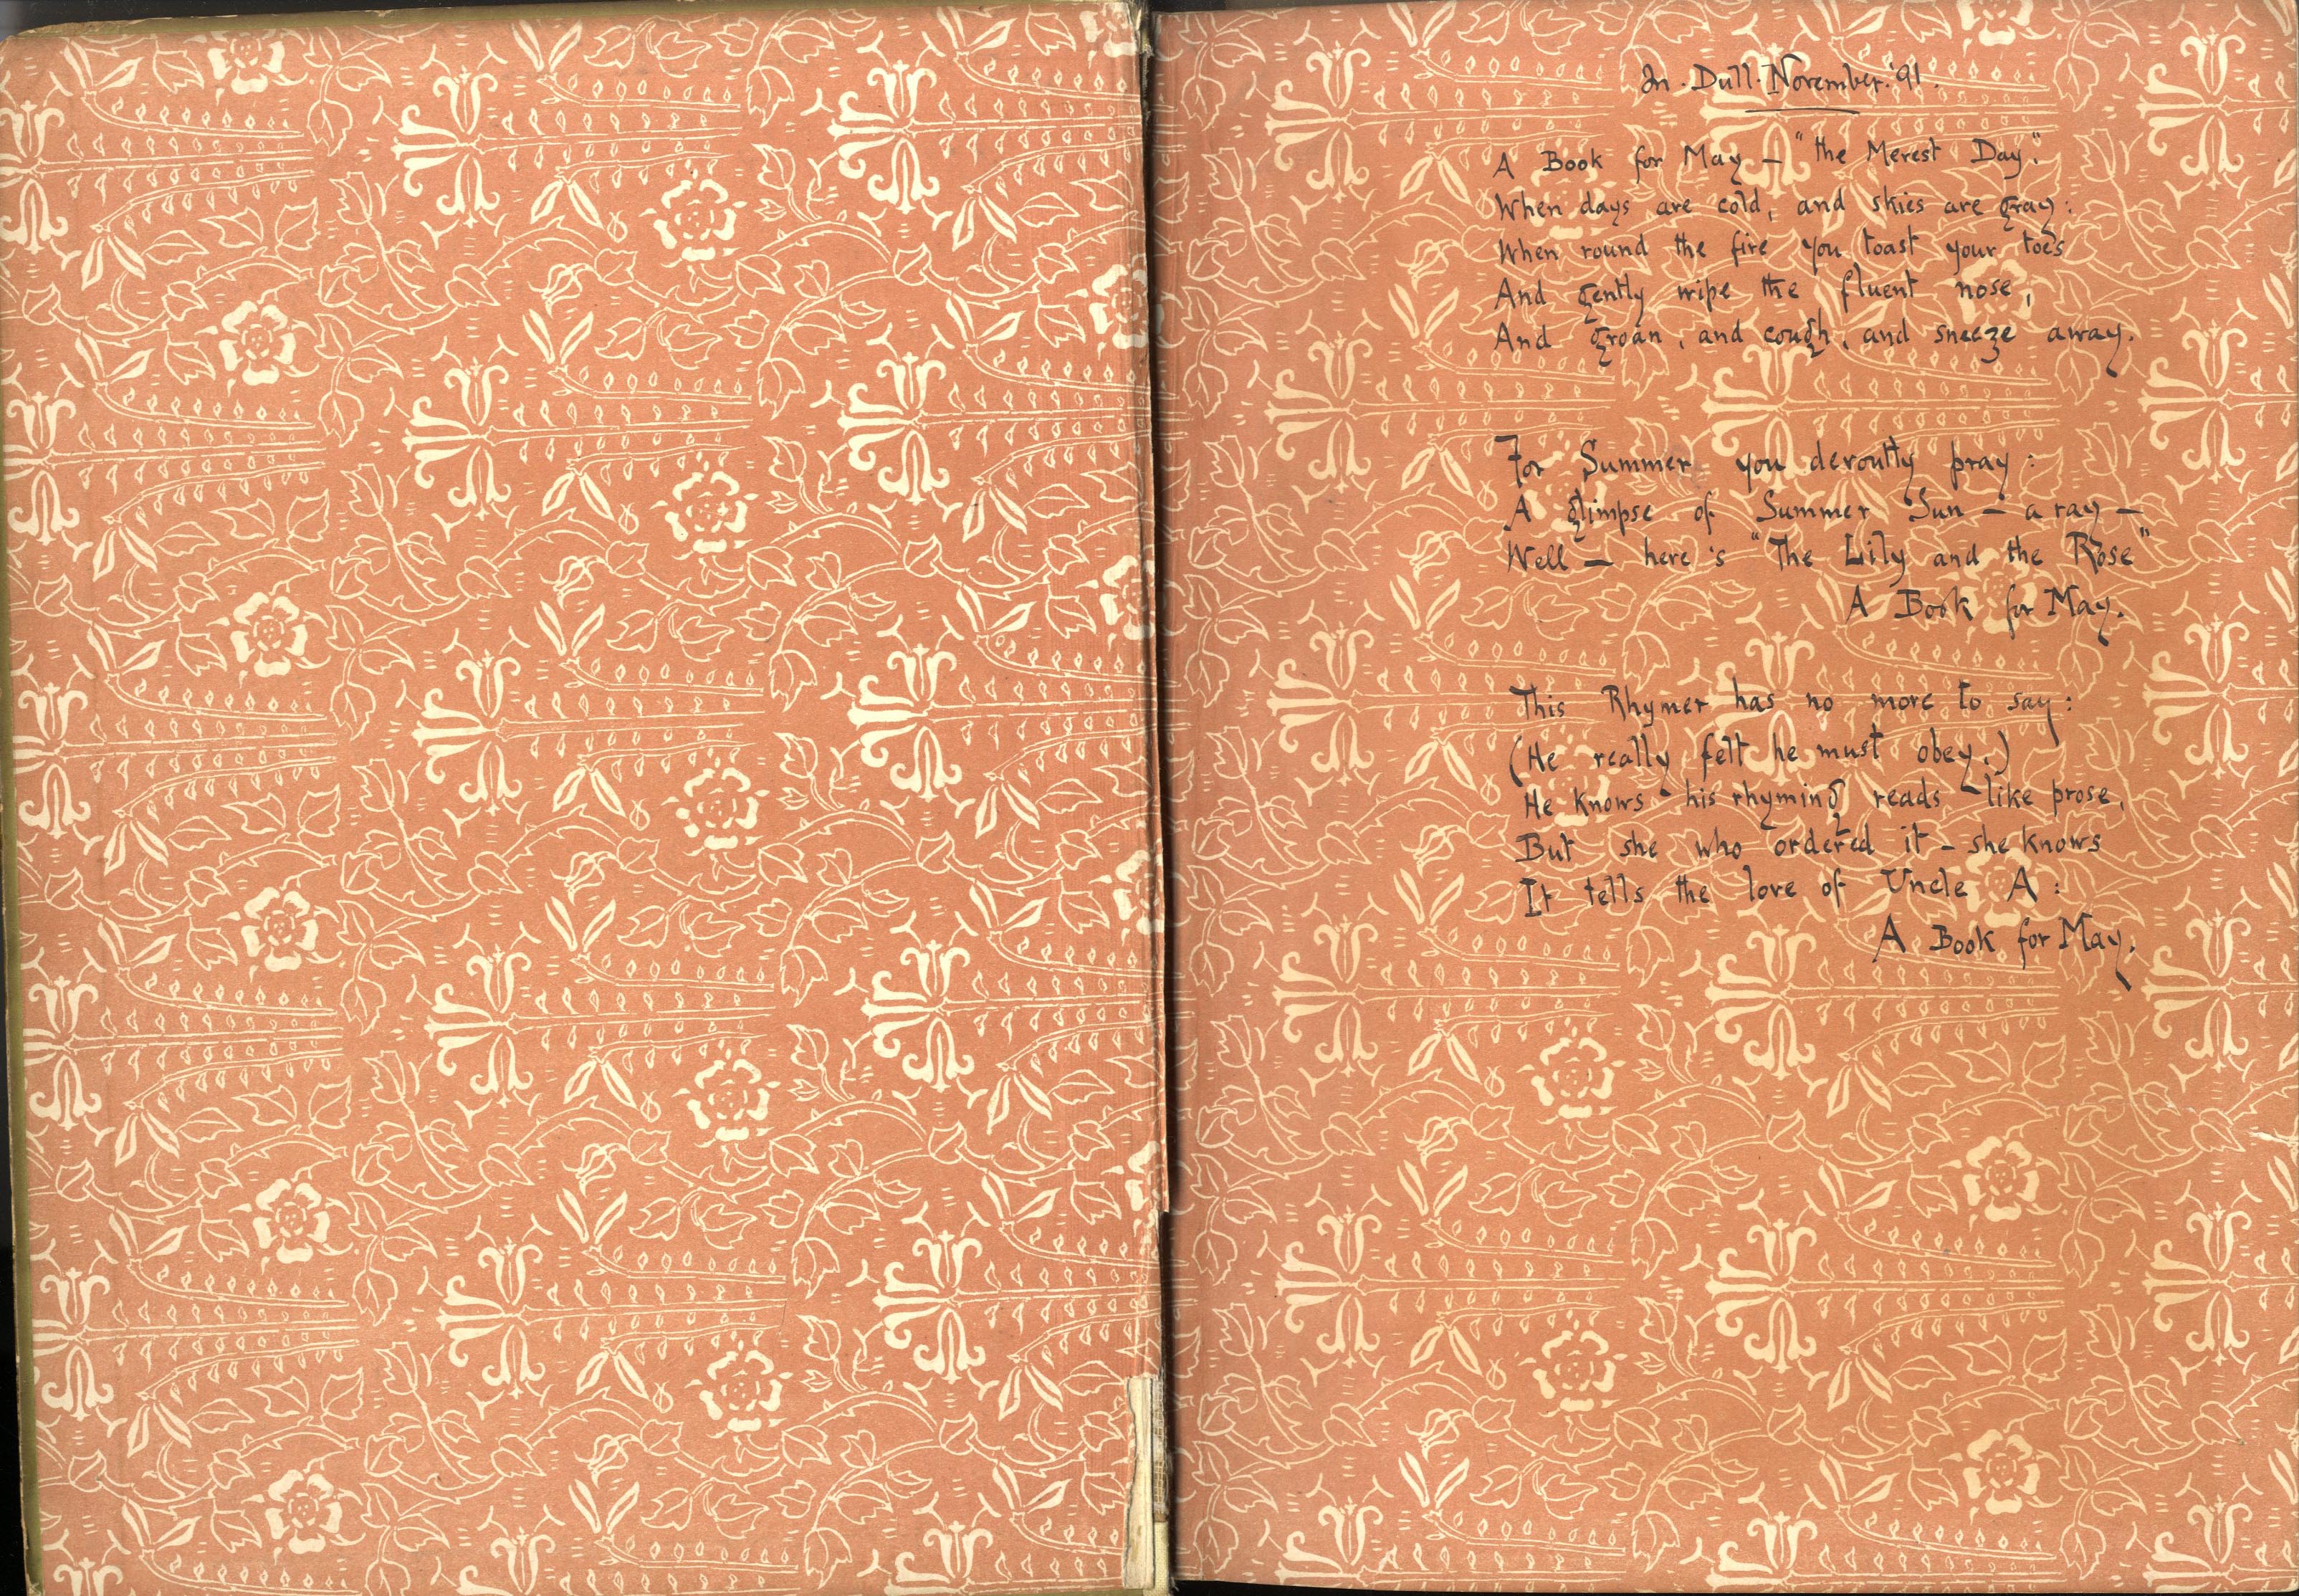 In. Dull. November. '91.
A Book for May — "the Merest Day".
When days are cold, and skies are gray:
When round the fire you toast your toes
And gently wipe the fluent nose,
And groan, and cough, and sneeze away.
For Summer you devoutly pray:
A glimpse of Summer Sun — a ray —
Well — here's "The Lily and the Rose"
A Book for May.
This Rhymer has no more to say:
(He really felt he must obey.)
He knows his rhyming reads like prose,
But she who ordered it — she knows
It tells the love of Uncle A:
A Book for May.